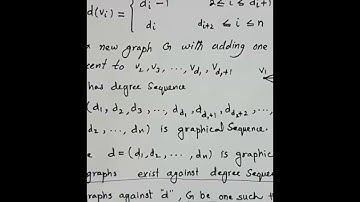 d(vᵢ) = { dᵢ - 1 2 ≤ i ≤ d₁+1
dᵢ d₁+2 ≤ i ≤ n
new graph G with adding one
cent to v₂, v₃, ..., v_d₁, v_d₁+1 v₁
has degree sequence
(d₁, d₂, d₃, ..., d_d₁, d_d₁+1, d_d₁+2, ...,
d₂, ..., dₙ) is graphical sequence.
e d = (d₁, d₂, ..., dₙ) is graphic
graphs exist against degree Seque
raphs against "d", G be one such